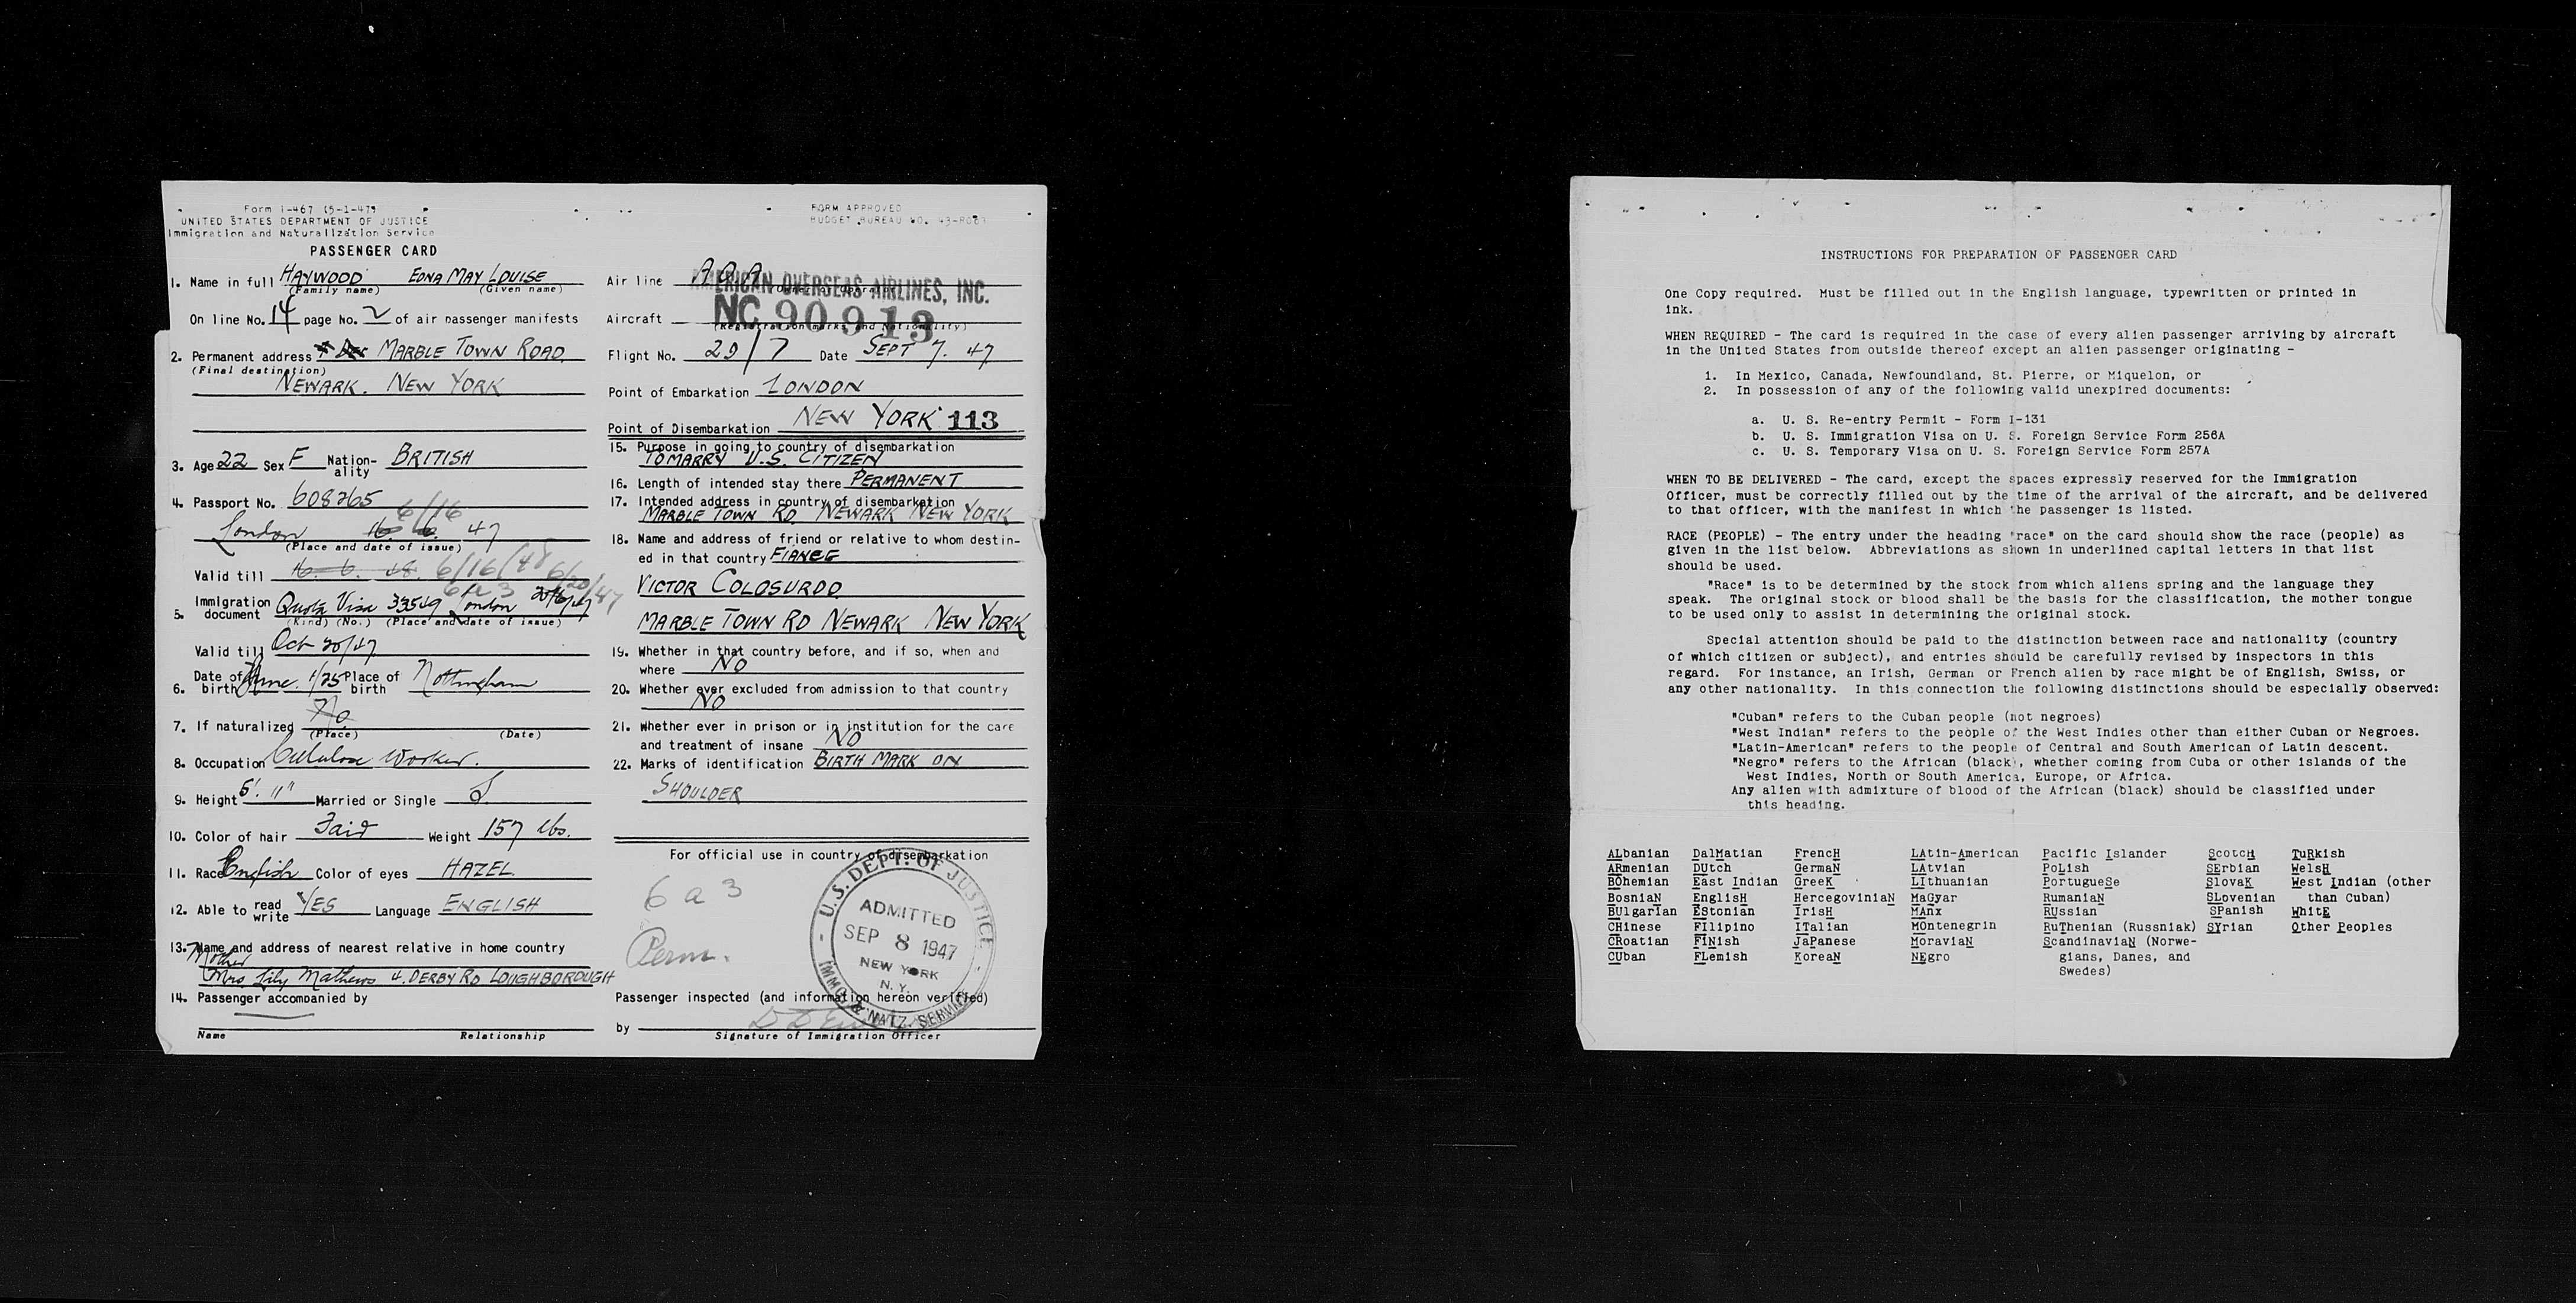 Form I-467 (5-1-47)
UNITED STATES DEPARTMENT OF JUSTICE
Immigration and Naturalization Service
PASSENGER CARD
1. Name in full HAYWOOD EDNA MAY LOUISE
(Family name) (Given name)
On line No. 14 page No. 2 of air passenger manifests
2. Permanent address MARBLE TOWN ROAD.
(Final destination)
NEWARK. NEW YORK
3. Age 22 Sex F Nation-ality BRITISH
4. Passport No. 608265
6/16
London 16. 6. 47
(Place and date of issue)
Valid till 16. 6. 48. 6/16/48
6a3 6/20/47
5. Immigration document Quota Visa 33549 London 20/6/47
(Kind) (No.) (Place and date of issue)
Valid till Oct 20/47
6. Date of birth June. 1/25 Place of birth Nottingham
7. If naturalized No.
(Place) (Date)
8. Occupation Cellulose Worker.
9. Height 5'. 11" Married or Single S.
10. Color of hair Fair Weight 157 lbs.
11. Race English Color of eyes HAZEL.
12. Able to read write YES Language ENGLISH
13. Name and address of nearest relative in home country
Mother
Mrs Lily Mathews 4. DERBY RD LOUGHBOROUGH
14. Passenger accompanied by
Name Relationship
FORM APPROVED
BUDGET BUREAU NO. 43-R083
Air line A.O.A.
AMERICAN OVERSEAS AIRLINES, INC.
Owner or Operator
Aircraft NC 90913
(Registration marks and Nationality)
Flight No. 29/7 Date SEPT 7. 47
Point of Embarkation LONDON
Point of Disembarkation NEW YORK 113
15. Purpose in going to country of disembarkation
TO MARRY U.S. CITIZEN
16. Length of intended stay there PERMANENT
17. Intended address in country of disembarkation
MARBLE TOWN RD. NEWARK NEW YORK
18. Name and address of friend or relative to whom destin-
ed in that country FIANCE
VICTOR COLOSURDO.
MARBLE TOWN RD NEWARK NEW YORK
19. Whether in that country before, and if so, when and
where NO
20. Whether ever excluded from admission to that country
NO
21. Whether ever in prison or in institution for the care
and treatment of insane NO
22. Marks of identification BIRTH MARK ON
SHOULDER
For official use in country of disembarkation
6 a 3
Perm.
U.S. DEPT. OF JUSTICE
ADMITTED
SEP 8 1947
NEW YORK
N. Y.
IMMIG. & NATZ. SERVICE
Passenger inspected (and information hereon verified)
by
Signature of Immigration Officer
INSTRUCTIONS FOR PREPARATION OF PASSENGER CARD
One Copy required. Must be filled out in the English language, typewritten or printed in
ink.
WHEN REQUIRED - The card is required in the case of every alien passenger arriving by aircraft
in the United States from outside thereof except an alien passenger originating -
1. In Mexico, Canada, Newfoundland, St. Pierre, or Miquelon, or
2. In possession of any of the following valid unexpired documents:
a. U. S. Re-entry Permit - Form I-131
b. U. S. Immigration Visa on U. S. Foreign Service Form 256A
c. U. S. Temporary Visa on U. S. Foreign Service Form 257A
WHEN TO BE DELIVERED - The card, except the spaces expressly reserved for the Immigration
Officer, must be correctly filled out by the time of the arrival of the aircraft, and be delivered
to that officer, with the manifest in which the passenger is listed.
RACE (PEOPLE) - The entry under the heading "race" on the card should show the race (people) as
given in the list below. Abbreviations as shown in underlined capital letters in that list
should be used.
"Race" is to be determined by the stock from which aliens spring and the language they
speak. The original stock or blood shall be the basis for the classification, the mother tongue
to be used only to assist in determining the original stock.
Special attention should be paid to the distinction between race and nationality (country
of which citizen or subject), and entries should be carefully revised by inspectors in this
regard. For instance, an Irish, German or French alien by race might be of English, Swiss, or
any other nationality. In this connection the following distinctions should be especially observed:
"Cuban" refers to the Cuban people (not negroes)
"West Indian" refers to the people of the West Indies other than either Cuban or Negroes.
"Latin-American" refers to the people of Central and South American of Latin descent.
"Negro" refers to the African (black), whether coming from Cuba or other islands of the
West Indies, North or South America, Europe, or Africa.
Any alien with admixture of blood of the African (black) should be classified under
this heading.
ALbanian DalMatian FrencH LAtin-American Pacific Islander ScotcH TuRkish
ARmenian DUtch GermaN LAtvian PoLish SErbian WelsH
BOhemian East Indian GreeK LIthuanian PortugueSe SlovaK West Indian (other
BosniaN EnglisH HercegoviniaN MaGyar RumaniaN SLovenian than Cuban)
BUlgarian EStonian IrisH MAnx RUssian SPanish WhitE
CHinese FIlipino ITalian MOntenegrin RuThenian (Russniak) SYrian Other Peoples
CRoatian FINish JaPanese MoraviaN ScandinaviaN (Norwe-
CUban FLemish KoreaN NEgro gians, Danes, and
Swedes)